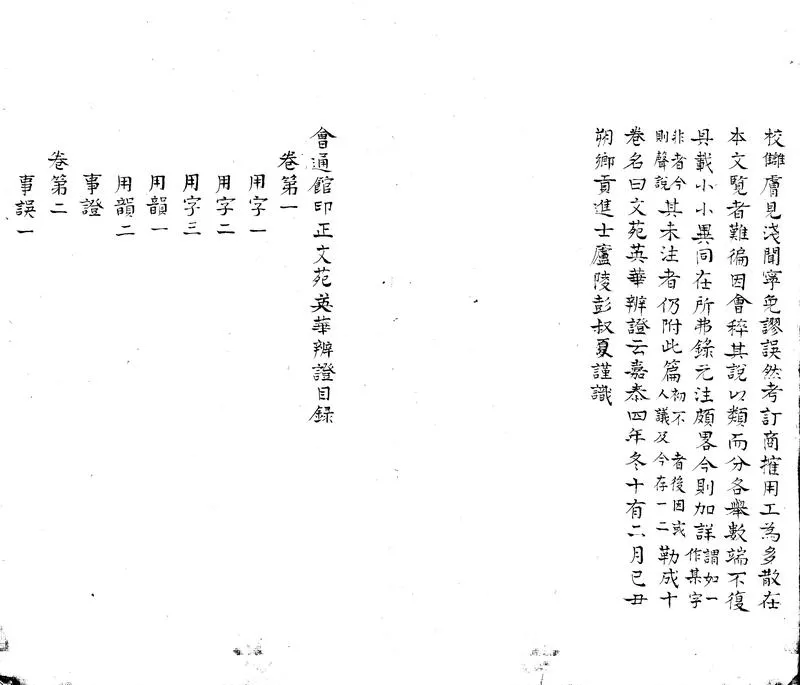 校讎膚見淺聞寧免謬誤然考訂商搉用工為多散在
本文覽者難徧因會稡其說以類而分各舉數端不復
具載小小異同在所弗錄元注頗畧今則加詳謂如一作某字
非者今則聲說其未注者仍附此篇初不 者後因或人議及今存一二勒成十
卷名曰文苑英華辨證云嘉泰四年冬十有二月己丑
朔鄉貢進士廬陵彭叔夏謹識
會通館印正文苑英華辨證目錄
卷第一
用字一
用字二
用字三
用韻一
用韻二
事證
卷第二
事誤一